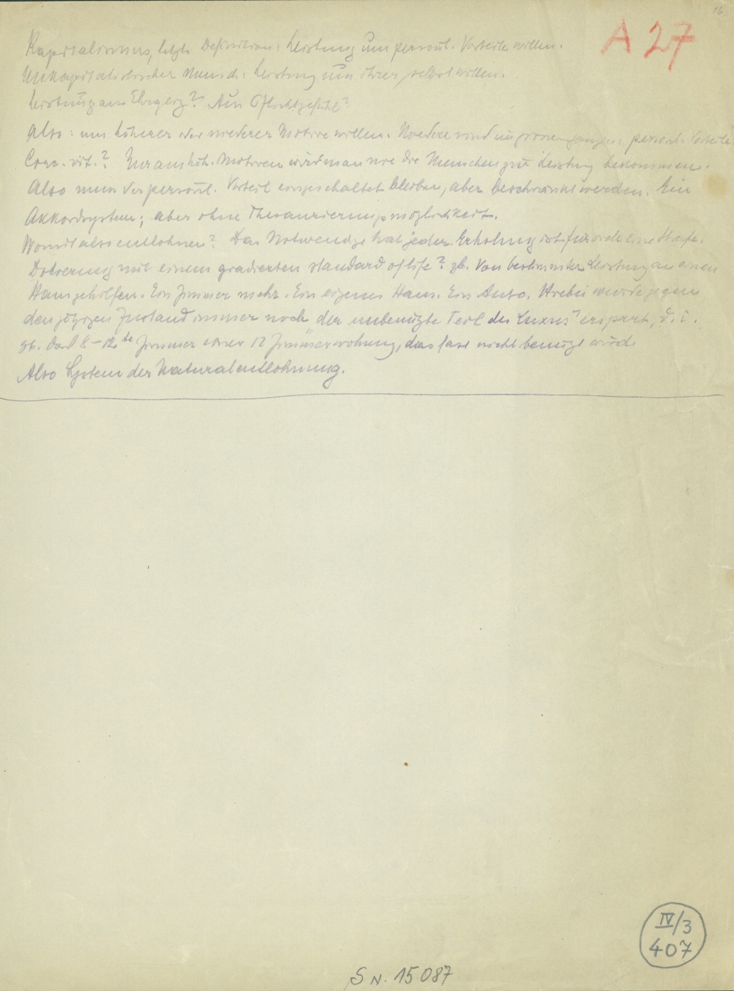 16
A 27
Kapitalismus, letzte Definition: Leistung um persönl. Vorteile willen.
Unkapitalistischer Mensch: Leistung um ihrer selbst willen.
Leistung aus Ehrgeiz? Aus Pflichtgefühl?
Also: um höherer oder niederer Motive willen. Niedere sind persönl. Vorteile
Corr. vit.? Nur aus höh. Motiven wird man nie die Menschen zur Leistung bekommen.
Also muss der persönl. Vorteil eingeschaltet bleiben, aber beschränkt werden. Ein
Akkordsystem; aber ohne Thesaurierungsmöglichkeit.
Womit also entlohnen? Das Notwendige hat jeder. Erholung ist für jeden eine Hafe.
Dotierung mit einem gradierten standard of life? zb. Von bestimmter Leistung an einen
Hausgehilfen. Ein Zimmer mehr. Ein eigenes Haus. Ein Auto. Hiebei würde gegen
den jetzigen Zustand immer noch der unbenützte Teil des „Luxus" erspart, d. i.
zb. das 8–12te Zimmer einer 12 Zimmerwohnung, das fast nicht benützt wird
Also System der Naturalentlohnung.
IV/3
407
S N. 15 087